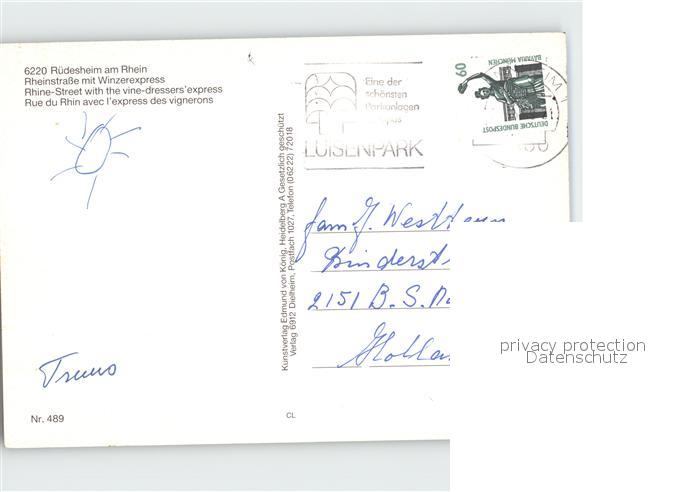 6220 Rüdesheim am Rhein
Rheinstraße mit Winzerexpress
Rhine-Street with the vine-dressers'express
Rue du Rhin avec l'express des vignerons
Nr. 489
Kunstverlag Edmund von König, Heidelberg A Gesetzlich geschützt
Verlag 6912 Dielheim, Postfach 1027, Telefon (06222) 72018
CL
Eine der
schönsten
Parkanlagen
LUISENPARK
60
BAVARIA MÜNCHEN
DEUTSCHE BUNDESPOST
fam. J.
2151 B.S.
privacy protection
Datenschutz